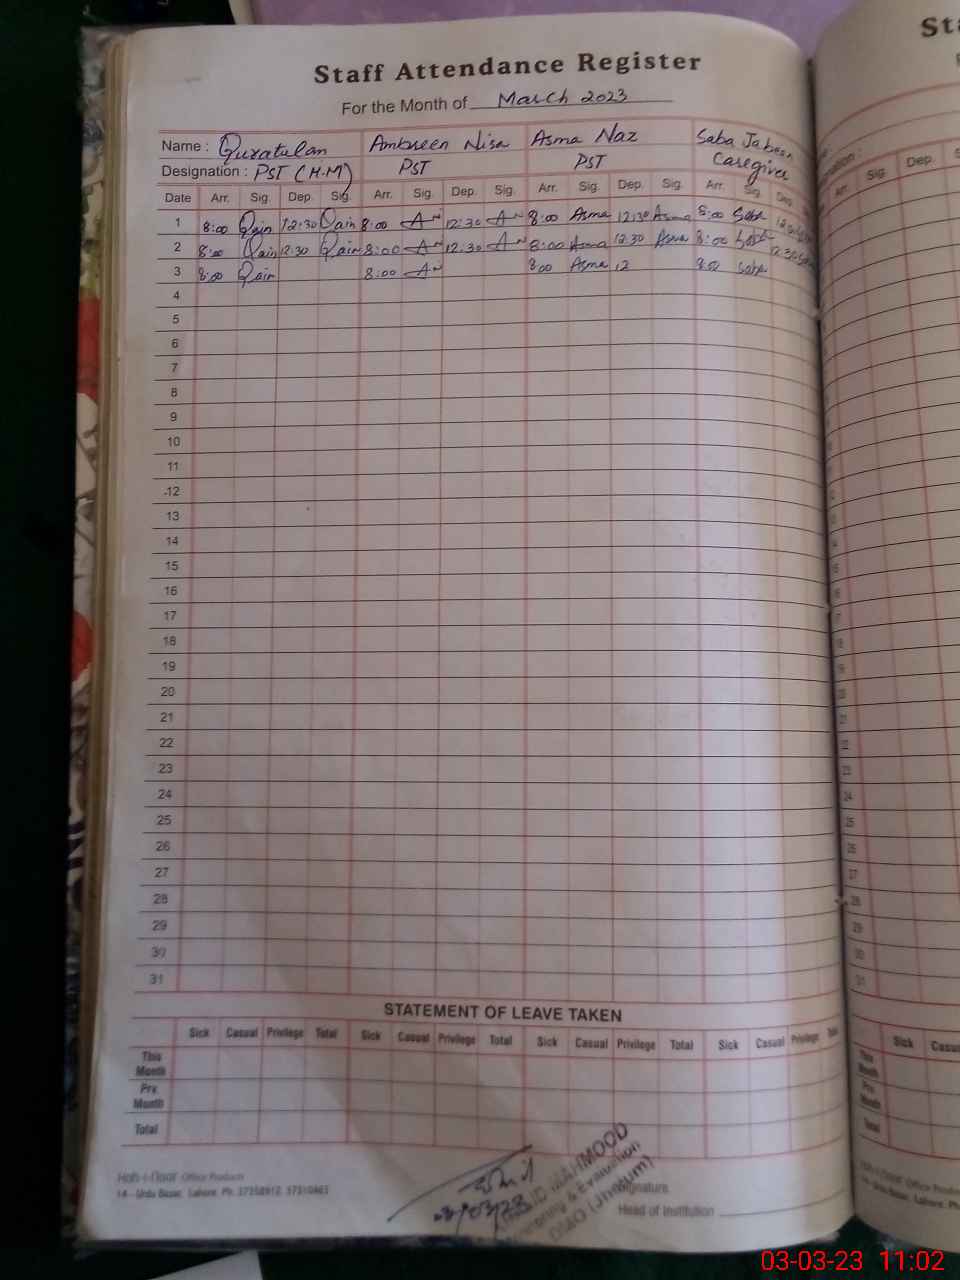 Staff Attendance Register
For the Month of March 2023
Name : Quratulan Ambreen Nisa Asma Naz Saba Jabeen
Designation : PST (H.M) PST PST Caregiver
Date Arr. Sig. Dep. Sig. Arr. Sig. Dep. Sig. Arr. Sig. Dep. Sig. Arr. Sig. Dep.
1 8:00 Qain 12:30 Qain 8:00 AN 12:30 AN 8:00 Asma 12:30 Asma 8:00 Saba
2 8:00 Qain 12:30 Qain 8:00 AN 12:30 AN 8:00 Asma 12:30 Asma 8:00 Saba 12:30
3 8:00 Qain 8:00 AN 8:00 Asma 12 8:00 Saba
4
5
6
7
8
9
10
11
12
13
14
15
16
17
18
19
20
21
22
23
24
25
26
27
28
29
30
31
STATEMENT OF LEAVE TAKEN
Sick Casual Privilege Total Sick Casual Privilege Total Sick Casual Privilege Total Sick Casual Privilege
This Month
Prv. Month
Total
Office Products
14 - Urdu Bazar, Lahore. Ph: 37358912, 37310465
MAHMOOD
& Evaluation
DMO (Jhelum)
Signature
Head of Institution
03-03-23 11:02